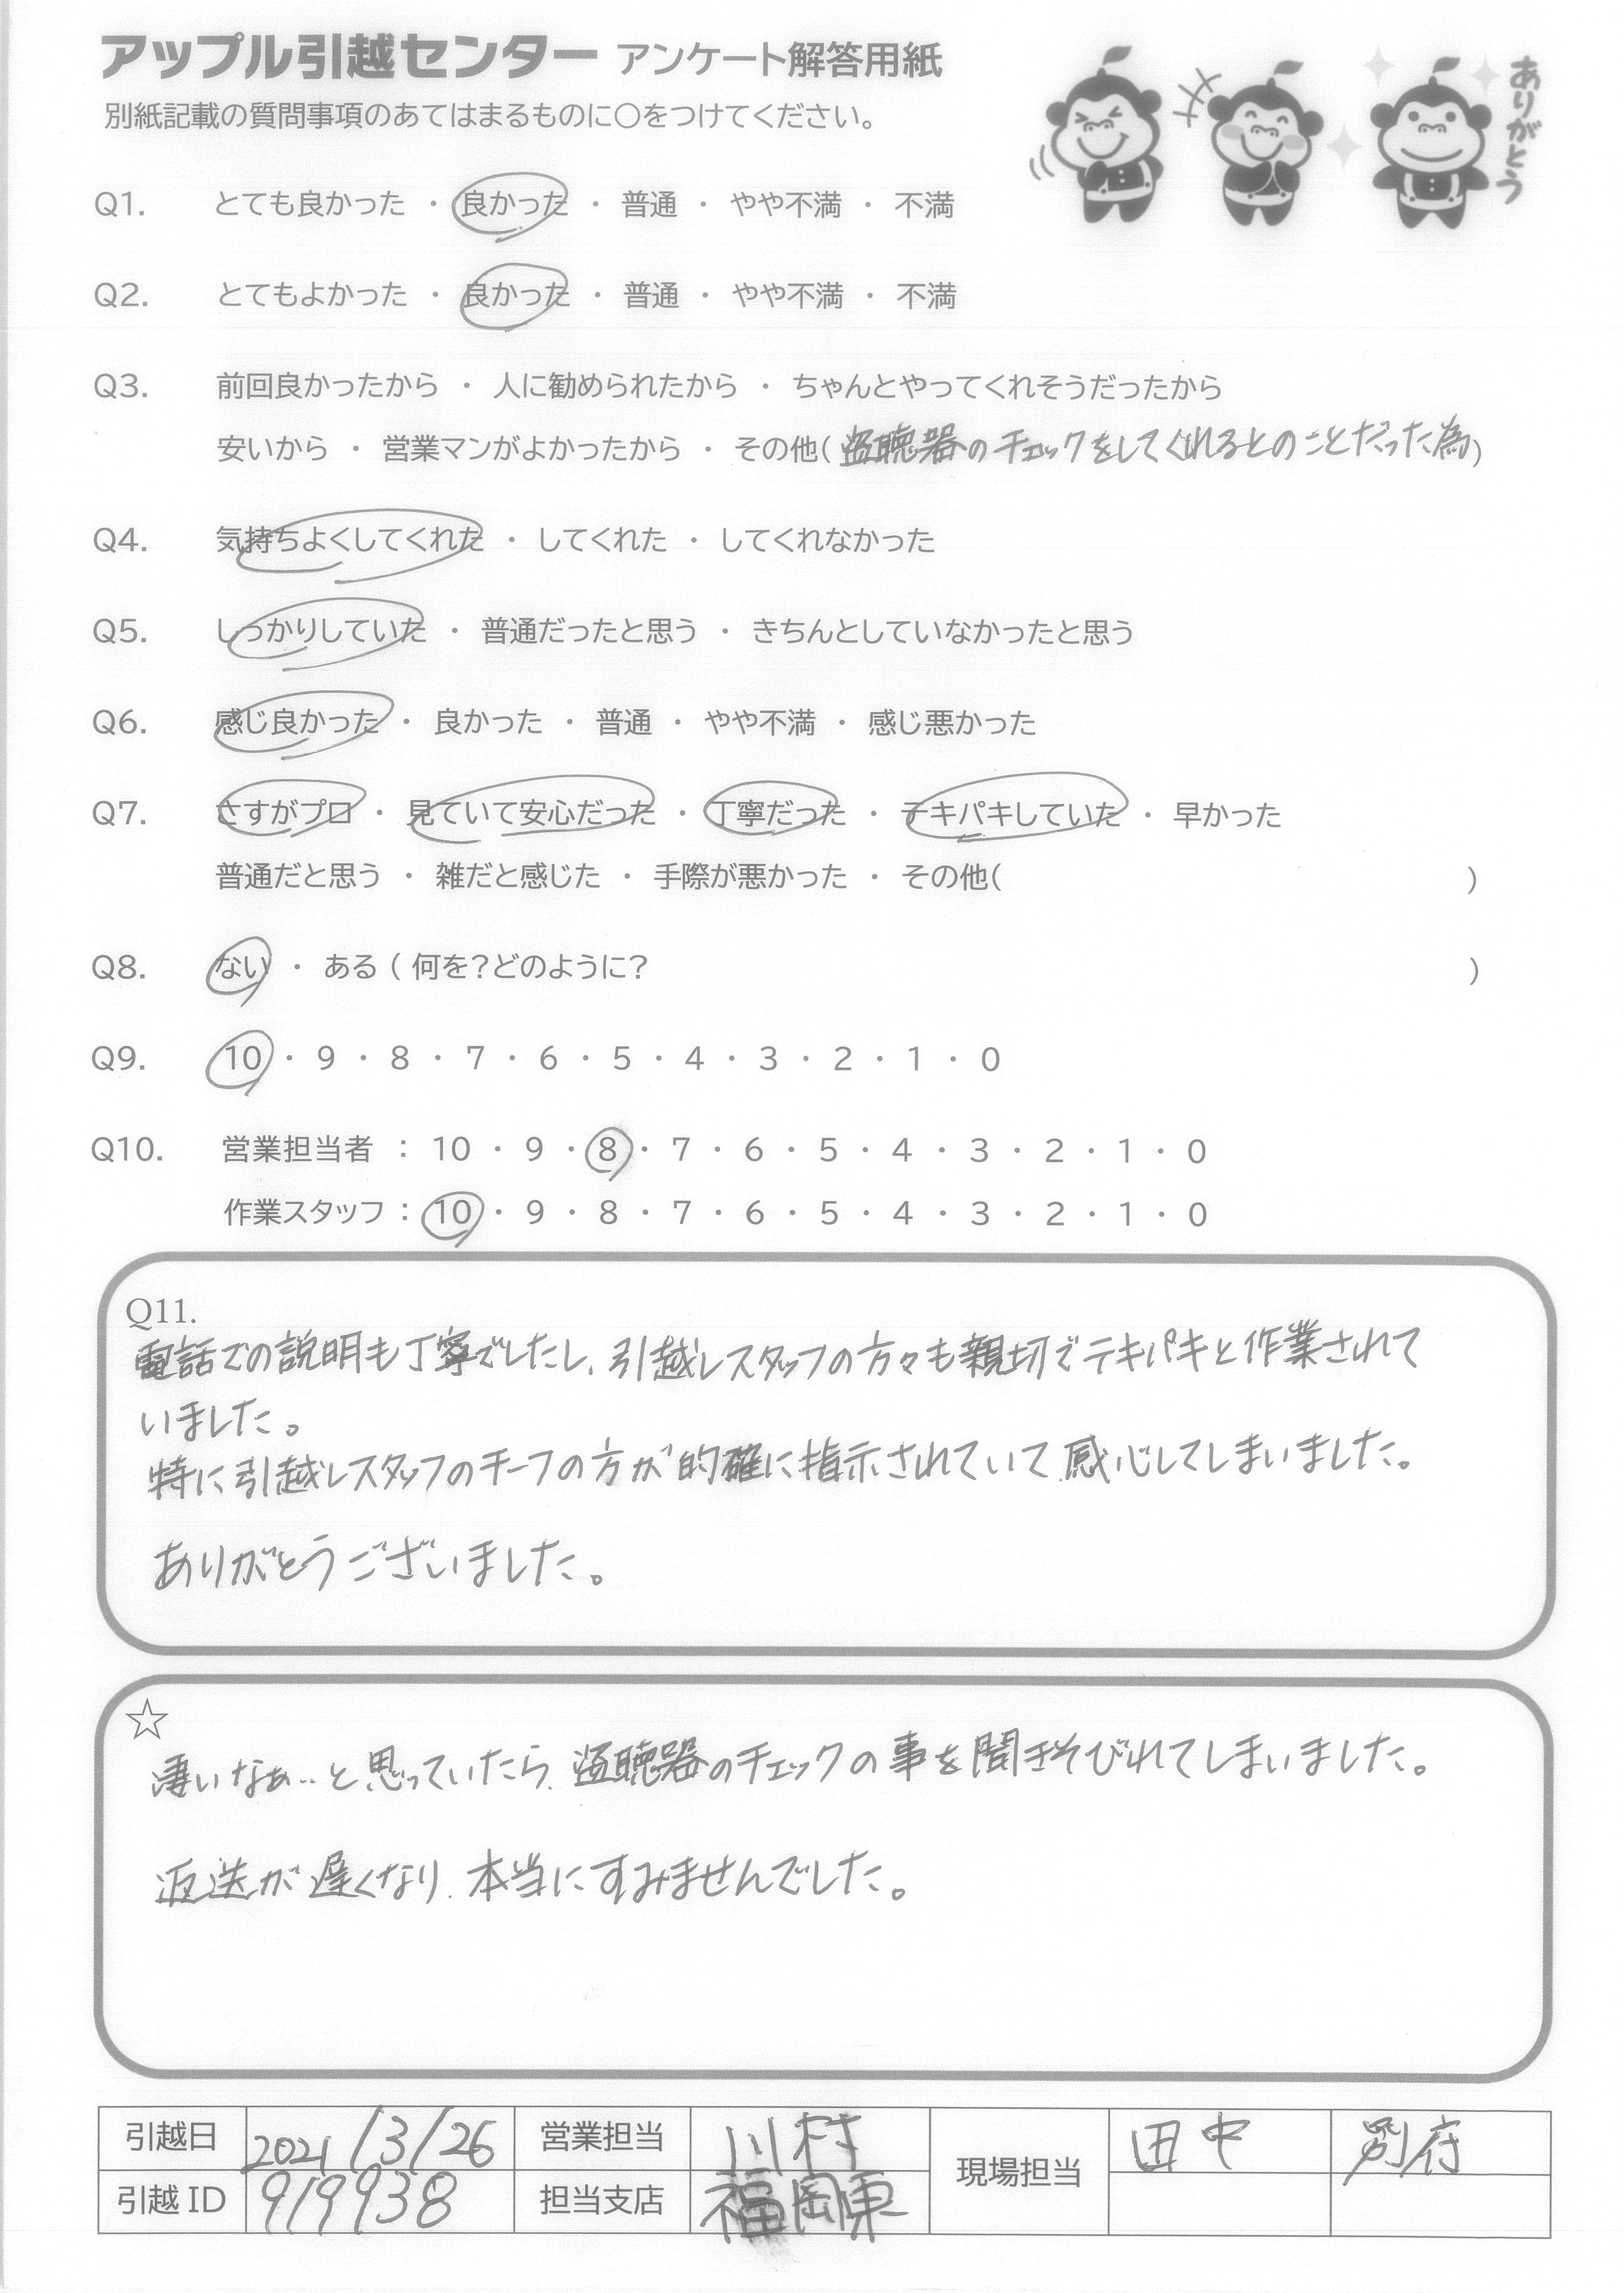 アップル引越センター アンケート解答用紙
別紙記載の質問事項のあてはまるものに○をつけてください。
ありがとう
Q1. とても良かった ・ 良かった ・ 普通 ・ やや不満 ・ 不満
Q2. とてもよかった ・ 良かった ・ 普通 ・ やや不満 ・ 不満
Q3. 前回良かったから ・ 人に勧められたから ・ ちゃんとやってくれそうだったから
安いから ・ 営業マンがよかったから ・ その他( 盗聴器のチェックをしてくれるとのことだった為)
Q4. 気持ちよくしてくれた ・ してくれた ・ してくれなかった
Q5. しっかりしていた ・ 普通だったと思う ・ きちんとしていなかったと思う
Q6. 感じ良かった ・ 良かった ・ 普通 ・ やや不満 ・ 感じ悪かった
Q7. さすがプロ ・ 見ていて安心だった ・ 丁寧だった ・ テキパキしていた ・ 早かった
普通だと思う ・ 雑だと感じた ・ 手際が悪かった ・ その他( )
Q8. ない ・ ある ( 何を?どのように? )
Q9. 10 ・ 9 ・ 8 ・ 7 ・ 6 ・ 5 ・ 4 ・ 3 ・ 2 ・ 1 ・ 0
Q10. 営業担当者 : 10 ・ 9 ・ 8 ・ 7 ・ 6 ・ 5 ・ 4 ・ 3 ・ 2 ・ 1 ・ 0
作業スタッフ : 10 ・ 9 ・ 8 ・ 7 ・ 6 ・ 5 ・ 4 ・ 3 ・ 2 ・ 1 ・ 0
Q11.
電話での説明も丁寧でしたし、引越しスタッフの方々も親切でテキパキと作業されて
いました。
特に引越しスタッフのチーフの方が的確に指示されていて感心してしまいました。
ありがとうございました。
☆
凄いなぁ…と思っていたら、盗聴器のチェックの事を聞きそびれてしまいました。
返送が遅くなり、本当にすみませんでした。
引越日 2021/3/26 営業担当 川村 現場担当 田中 別府
引越 ID 919938 担当支店 福岡東